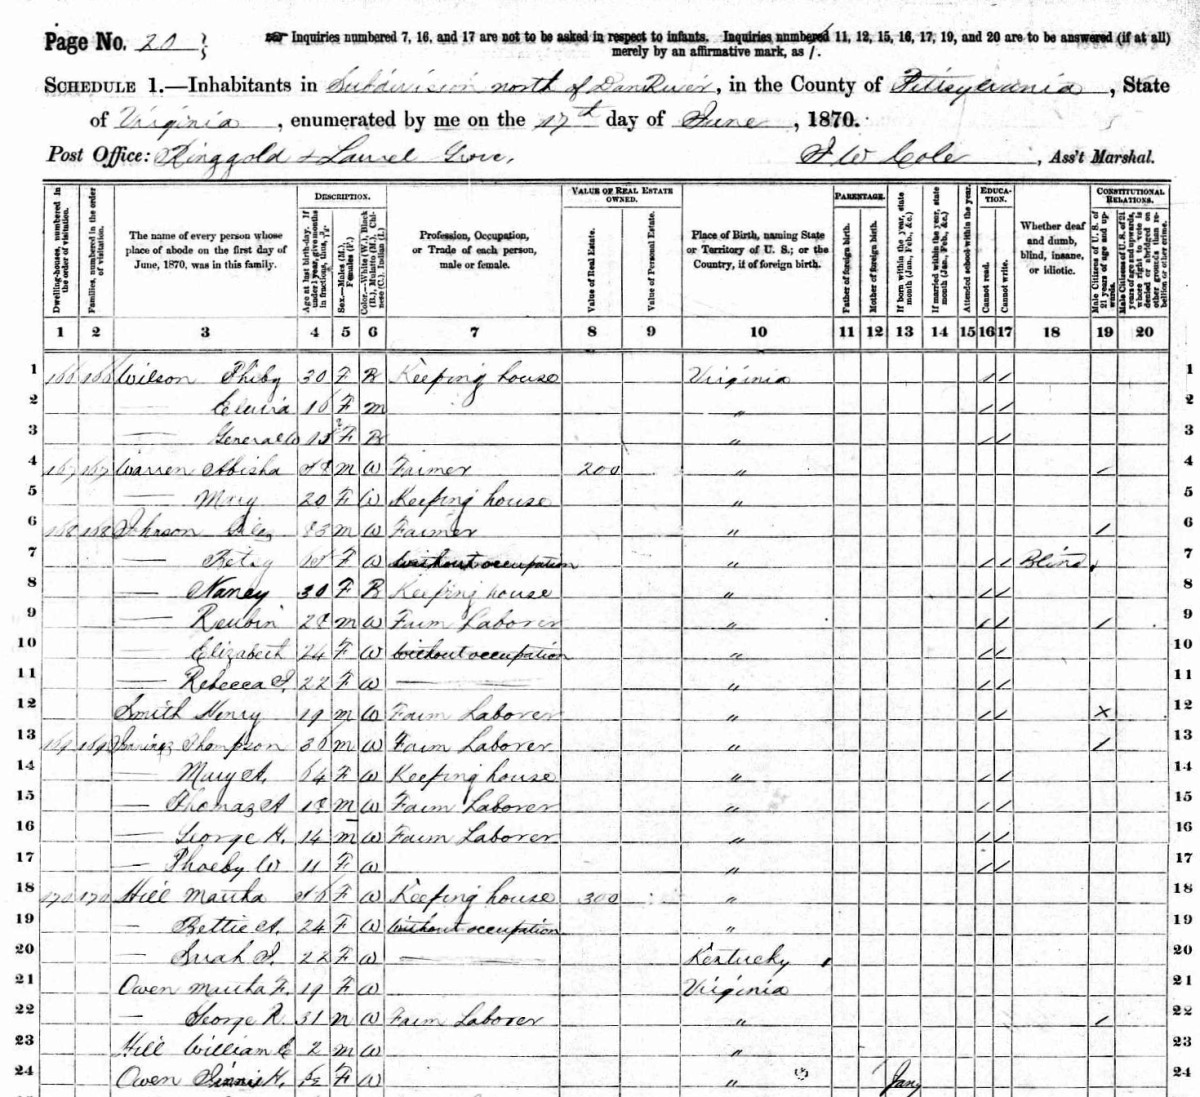 Page No. 20
Inquiries numbered 7, 16, and 17 are not to be asked in respect to infants. Inquiries numbered 11, 12, 15, 16, 17, 19, and 20 are to be answered (if at all)
merely by an affirmative mark, as /.
SCHEDULE 1.—Inhabitants in Subdivision north of Dan River, in the County of Pittsylvania, State
of Virginia, enumerated by me on the 17th day of June, 1870.
Post Office: Ringgold & Laurel Grove. J W Cole, Ass't Marshal.
DESCRIPTION. VALUE OF REAL ESTATE OWNED. PARENTAGE. EDUCATION. CONSTITUTIONAL RELATIONS.
Dwelling-houses, numbered in the order of visitation.
Families, numbered in the order of visitation.
The name of every person whose place of abode on the first day of June, 1870, was in this family.
Age at last birth-day. If under 1 year, give months in fractions, thus,
Sex.—Males (M.), Females (F.)
Color.—White (W.), Black (B.), Mulatto (M.), Chinese (C.), Indian (I.)
Profession, Occupation, or Trade of each person, male or female.
Value of Real Estate.
Value of Personal Estate.
Place of Birth, naming State or Territory of U. S.; or the Country, if of foreign birth.
Father of foreign birth.
Mother of foreign birth.
If born within the year, state month (Jan., Feb., &c.)
If married within the year, state month (Jan., Feb., &c.)
Attended school within the year.
Cannot read.
Cannot write.
Whether deaf and dumb, blind, insane, or idiotic.
Male Citizens of U. S. of 21 years of age and upwards.
Male Citizens of U. S. of 21 years of age and upwards, whose right to vote is denied or abridged on other grounds than rebellion or other crime.
1 2 3 4 5 6 7 8 9 10 11 12 13 14 15 16 17 18 19 20
1 166 166 Wilson Phiby 30 F B Keeping house Virginia / / 1
2 — F M " / / 2
3 — General W F B " / / 3
4 167 167 Warren Abisha M W Farmer 200 " / 4
5 — Mary 20 F W Keeping house " 5
6 168 168 Johnson 83 M W Farmer " / 6
7 — Betsy F W without occupation " / / Blind 7
8 — Nancy 30 F B Keeping house " / / 8
9 — Reubin M W Farm Laborer " / / / 9
10 — Elizabeth 24 F W without occupation " / / 10
11 — Rebecca 22 F W — " / / 11
12 Smith Henry 19 M W Farm Laborer " / / X 12
13 169 169 Thompson M W Farm Laborer " / 13
14 — Mary A. F W Keeping house " / / 14
15 — Thomas A M W Farm Laborer " / / 15
16 — George H. 14 M W Farm Laborer " / / 16
17 — Phoeby W 11 F W " / / 17
18 170 170 Hill Martha F W Keeping house 300 " 18
19 — Bettie A. 24 F W without occupation " 19
20 — 22 F W — Kentucky 20
21 Owen Martha F. 19 F W Virginia 21
22 — George R. 31 M W Farm Laborer " / 22
23 Hill William 2 M W " 23
24 Owen H. F W " Jany 24